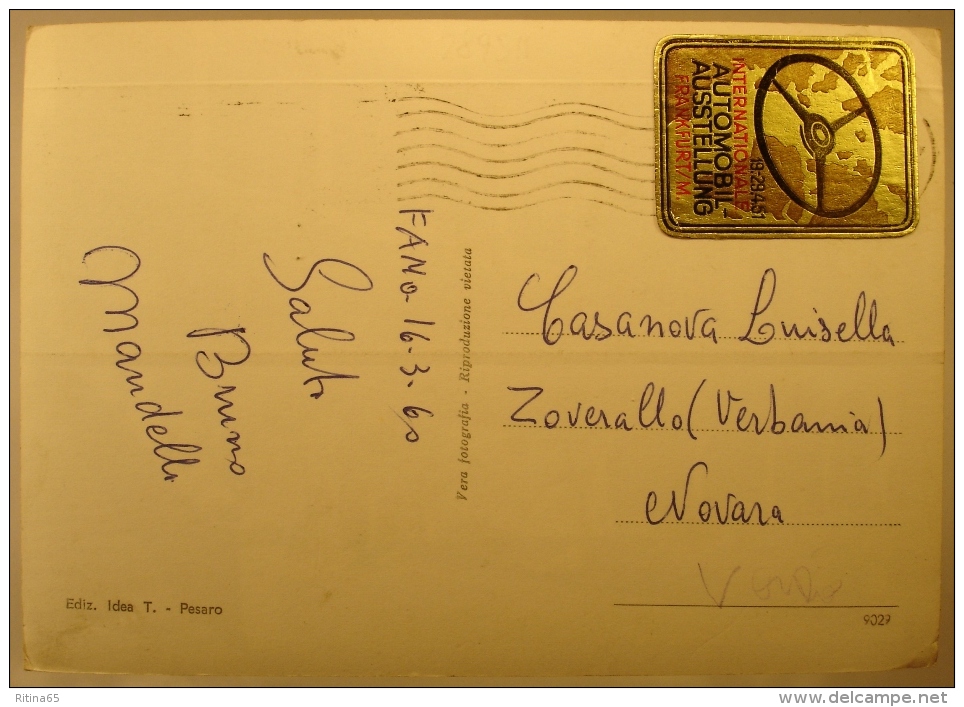 FANO. 16-3-60
Saluti
Bruno
Mandelli
Vera fotografia - Riproduzione vietata
INTERNATIONALE
AUTOMOBIL-
AUSSTELLUNG
FRANKFURT/M.
19-29.4.51
Casanova Luisella
Zoverallo (Verbania)
Novara
Ediz. Idea T. - Pesaro
9029
Ritina65
www.delcampe.net